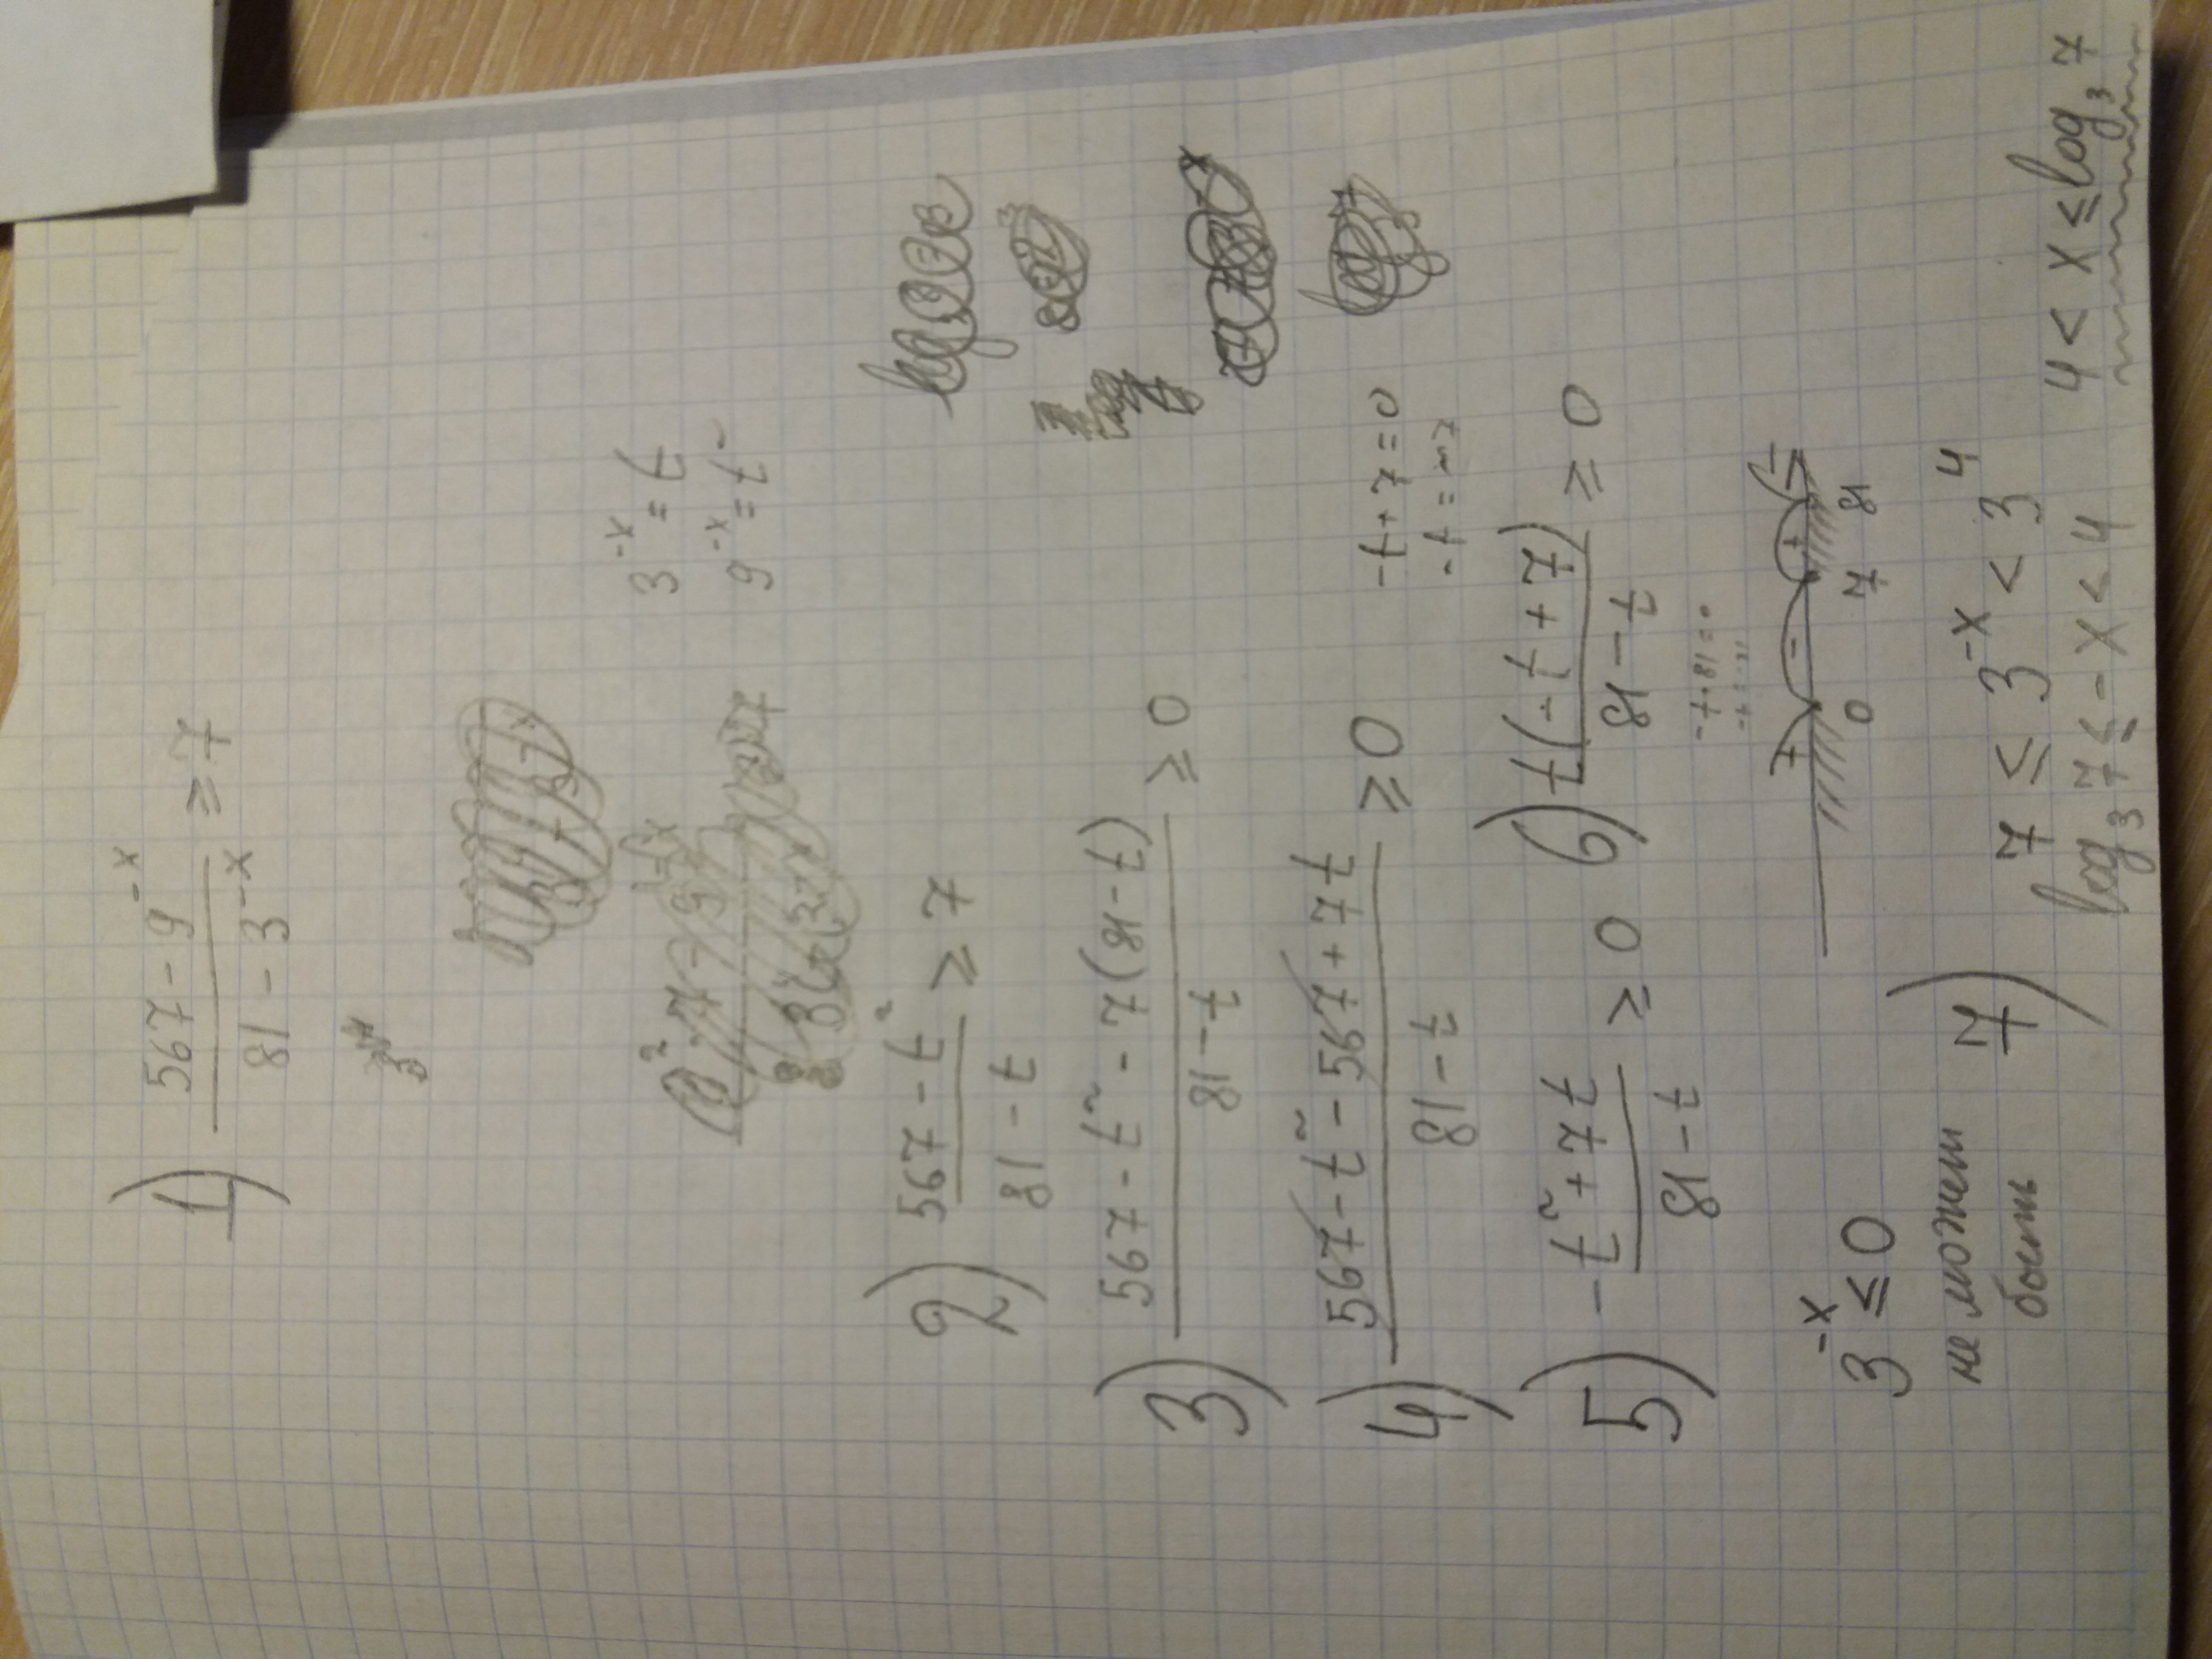 1) (567 - 9^-x)/(81 - 3^-x) ≥ 7
3^-x = t
9^-x = t²
2) (567 - t²)/(81 - t) ≥ 7
3) (567 - t² - 7(81 - t))/(81 - t) ≥ 0
4) (567 - t² - 567 + 7t)/(81 - t) ≥ 0
-t + 7 = 0
-t = -7
5) (-t² + 7t)/(81 - t) ≥ 0
6) t(-t + 7)/(81 - t) ≥ 0
-t + 81 = 0
-t = -81
+ - + -
0 7 81
3^-x ≤ 0
не может
быть
7) 7 ≤ 3^-x < 3^4
log₃ 7 ≤ -x < 4
4 < x ≤ log₃ 7